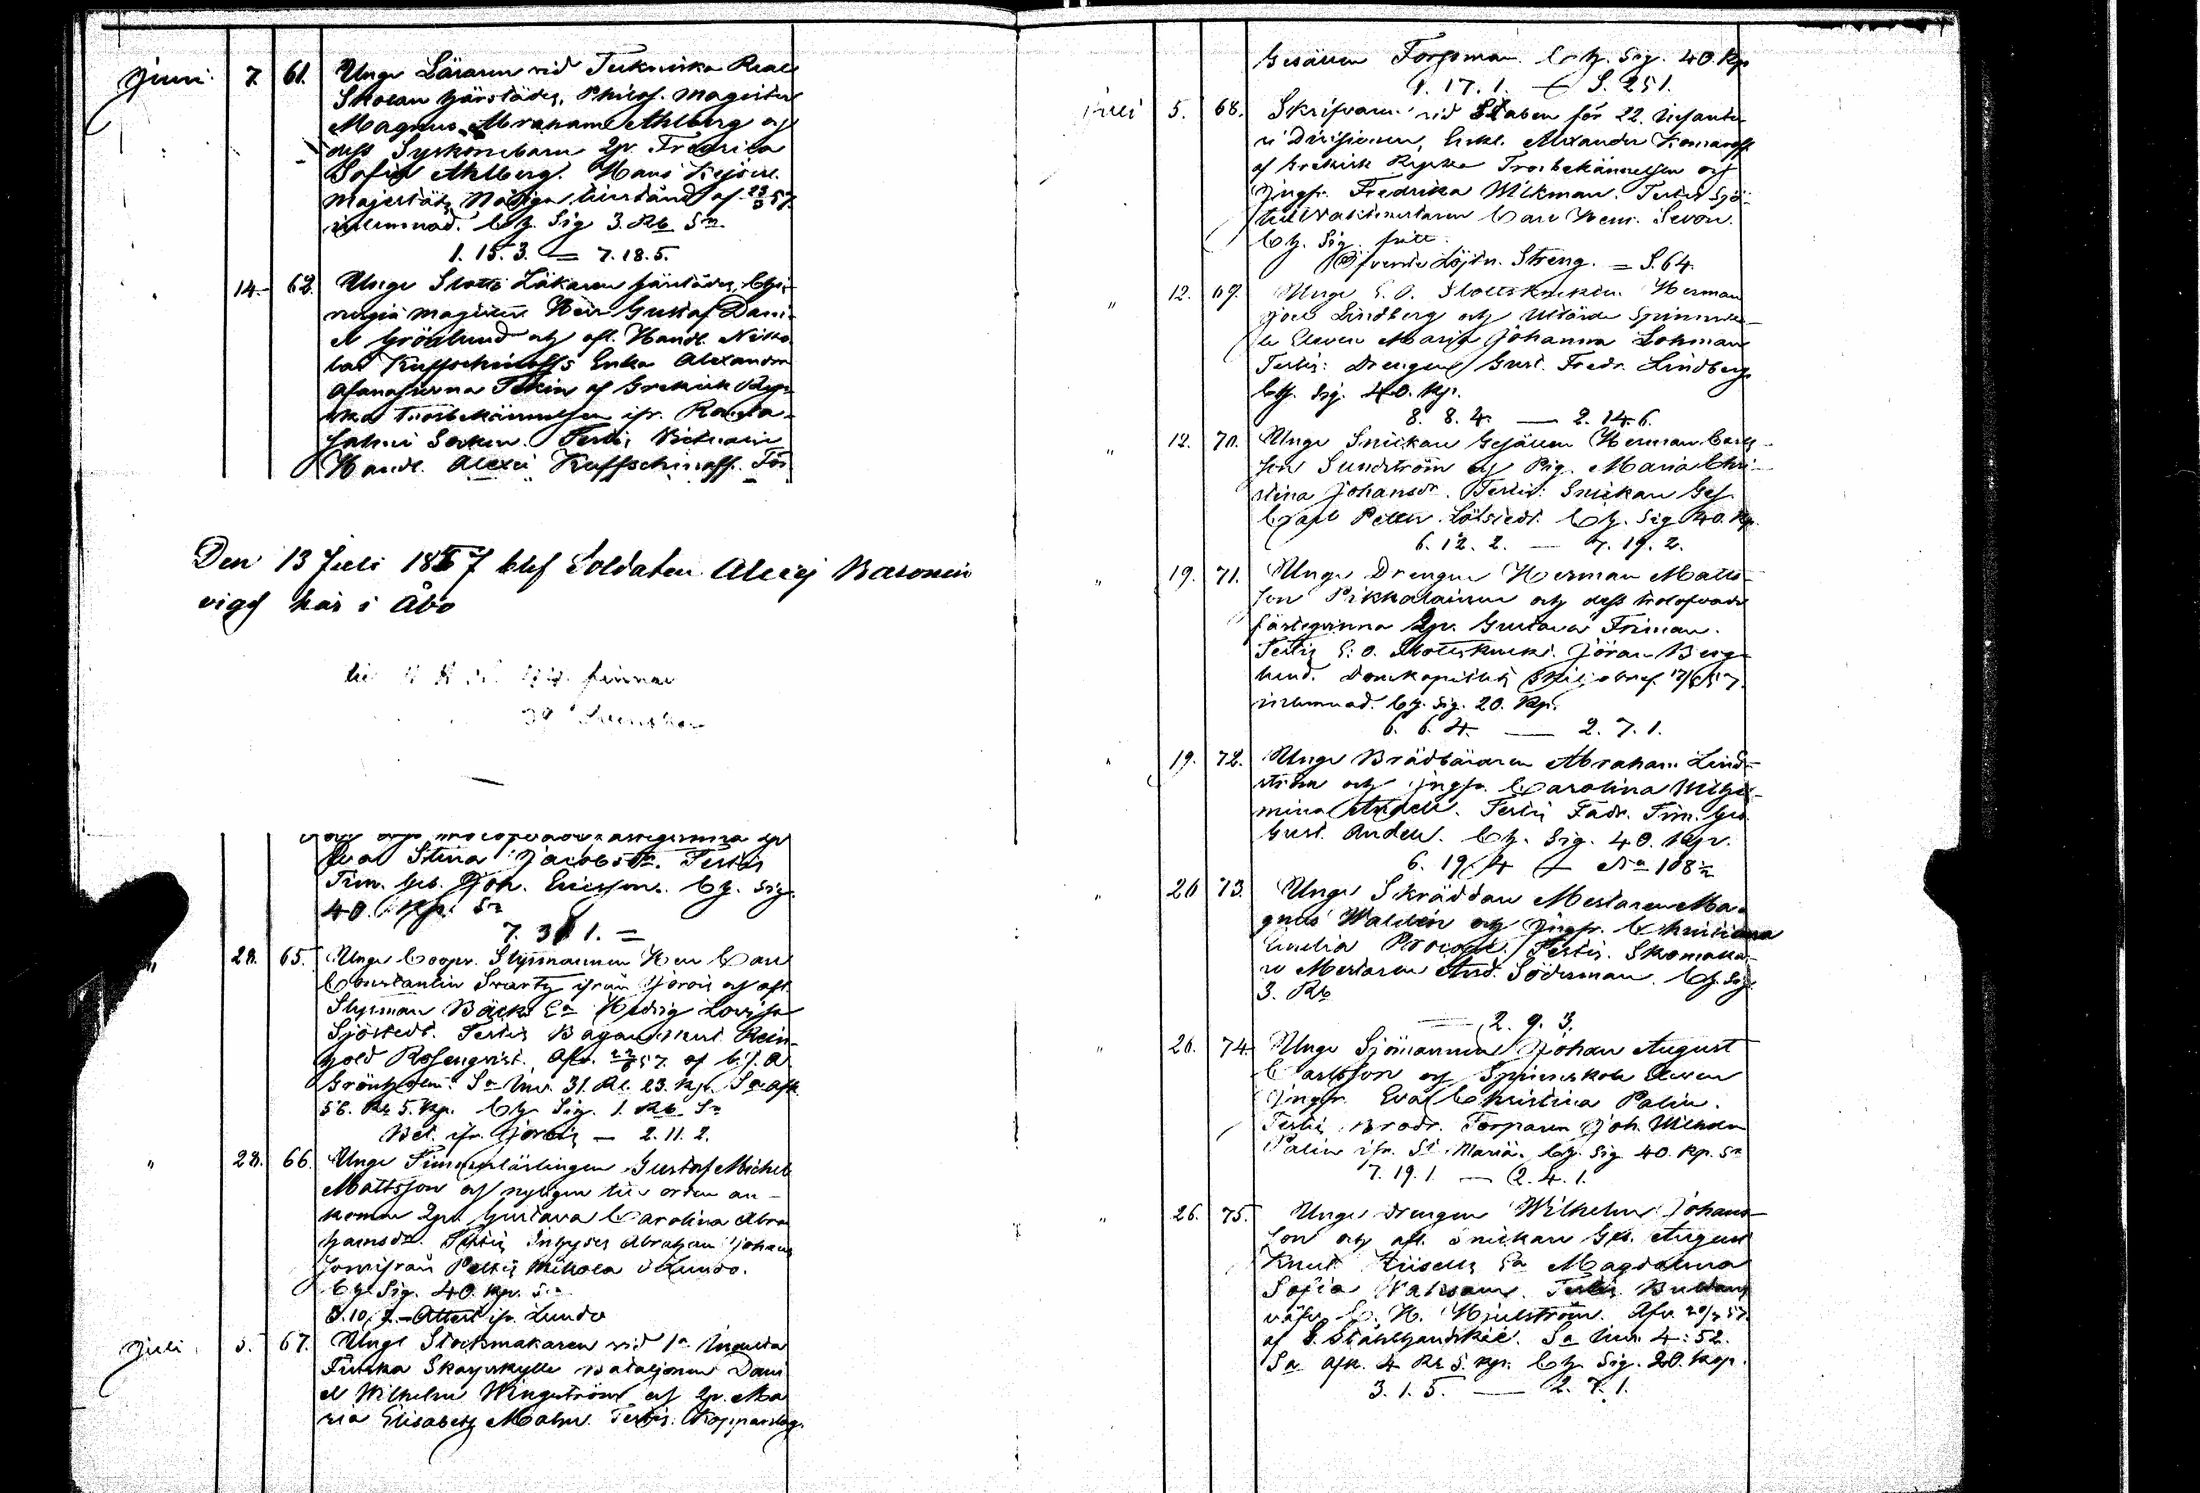 Juni 7. 61. Unge Läraren vid Tekniska Real
Skolan härstädes, Philos. Magister
Magnus Abraham Ahlberg och
dess Syskonebarn Dpr. Fredrica
Sofia Ahlberg. Hans Kejserl.
Majestäts Nådiga tillstånd af 57.
inlemnad. Ctz. Sig 3. Rb. Sn.
1. 15. 3. = 7. 18. 5.
14. 62. Unge Slotts Läkaren härstädes, Chi-
rurgiæ magister Herr Gustaf Dani-
el Grönlund och afl. Handl. Niko-
lai Kuffschinoffs Enka Alexandra
Afanasiewna af Grekisk Rys-
ska Trosbekännelsen ifr.
Socken. Testis
Handl. Alexei Kuffschinoff. För
Den 13 Juli 1857 blef Soldaten Alexej Baronin
vigd här i Åbo
finnar
Svenskar
Eva Stina Jacobsdr. Testis
Tim. Ges. Joh. Ericsson. Ctz. Sig.
40. Kp. Sn
7. 3 1. =
" 28. 65. Unge Coopv. Styrmannen Herr Carl
Constantin Svartz ifrån och afl.
Styrman Bäcks Ea Hedvig Lovisa
Sjöstedt. Testis Rein-
hold Rosenqvist. Afv. 57. af
Grönholm. Sa Inv. 31. Rb. 23. Kp. Sa afk.
56. Rb 5. Kp. Ctz Sig. 1. Rb. Sn
Bet. ifr. — 2. 11. 2.
" 28. 66. Unge Timmerlärlingen Gustaf Michel
Mattsson och nyligen till orten an-
komne Dpr. Gustava Carolina Abra
hamsdr. Testis Inhyses Abraham Johans
son ifrån Peltis Mikola i Lundo.
Ctz Sig. 40. Kp. Sn
3. 10. 2. — Attest ifr. Lundo
Juli 5. 67. Unge Stockmakaren vid 1a Indelta
Finska Skarpskytte Bataljonen Dani
el Wilhelm Wingström och Dpr. Ma
ria Elisabeth Malm. Testis: Kopparslag.
Gesällen Forssman. Ctz. Sig. 40. Kp
1. 17. 1. + S. 251.
Juli 5. 68. Skrifvaren vid Staben för 22. Infante
ri Divisionen, Enkl. Alexander Komaroff
af Grekisk Ryska Trosbekännelsen och
Jungfr. Fredrika Wikman. Testis Sjö-
tull Vaktmästaren Carl Henr. Sevon.
Ctz. Sig. fritt.
Öfverste Löjtn. Streng. = S. 64.
" 12. 69. Unge E. O. Slottsknekten Herman
Joel Lindberg och Utlärda Spinnsko-
le Eleven Maria Johanna Lohman
Testis: Drengen Gust. Fredr. Lindberg
Ctz. Sig. 40. Kp.
8. 8. 4. — 2. 14. 6.
" 12. 70. Unge Snickare Gesällen Herman Carls-
son Sundström och Pig. Maria Chri-
stina Johansdr. Testis: Snickare Ges.
Carl Petter Ctz. Sig 40. Kp.
6. 12. 2. — 7. 19. 2.
" 19. 71. Unge Drengen Herman Matts-
son Pikkalainen och dess trolofvade
fästeqvinna Dpr. Gustava Friman.
Testis E. O. Slottsknekt. Jöran Berg-
lund. Domkapitlets Skiljobref 17/6 57.
inlemnad. Ctz. Sig. 20. Kp.
6. 6. 4. — 2. 7. 1.
" 19. 72. Unge Brädbäraren Abraham Lind-
ström och Jungfr. Carolina Wilhel-
mina Andell. Testis Fadr. Tim. Ges.
Gust. Andell. Ctz. Sig. 40. Kp.
6. 19. 4 + No 108
" 26 73. Unge Skräddare Mestaren Ma-
gnus Waldén och Jungfr. Christiana
Emelia Testis. Skomaka-
re Mestaren And. Söderman. Ctz. Sig.
3. Rb
— 2. 9. 3.
" 26. 74. Unge Sjömannen Johan August
Carlsson och Spinnskole Eleven
Jungfr. Eva Christina Palin.
Testis Brodr. Torparen Joh. Wilhelm
Palin ifr. St. Mariæ. Ctz. Sig 40. Kp. Sn
7. 19. 1. — 2. 4. 1.
" 26. 75. Unge Drengen Wilhelm Johans-
son och afl. Snickare Ges. August
Knut Ea Magdalena
Sofia Testis Buldans
väfv. C. H. Hjulström. Afv. 20/7 57.
af Stålhandske. Sa Inv. 4: 52.
Sa Afk. 4 Rb 5. Kp. Ctz. Sig. 20. Kop.
3. 1. 5. — 2. 7. 1.